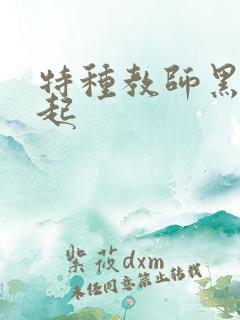 特種教師黑
起
紫筱dxm
未经同意禁止转载